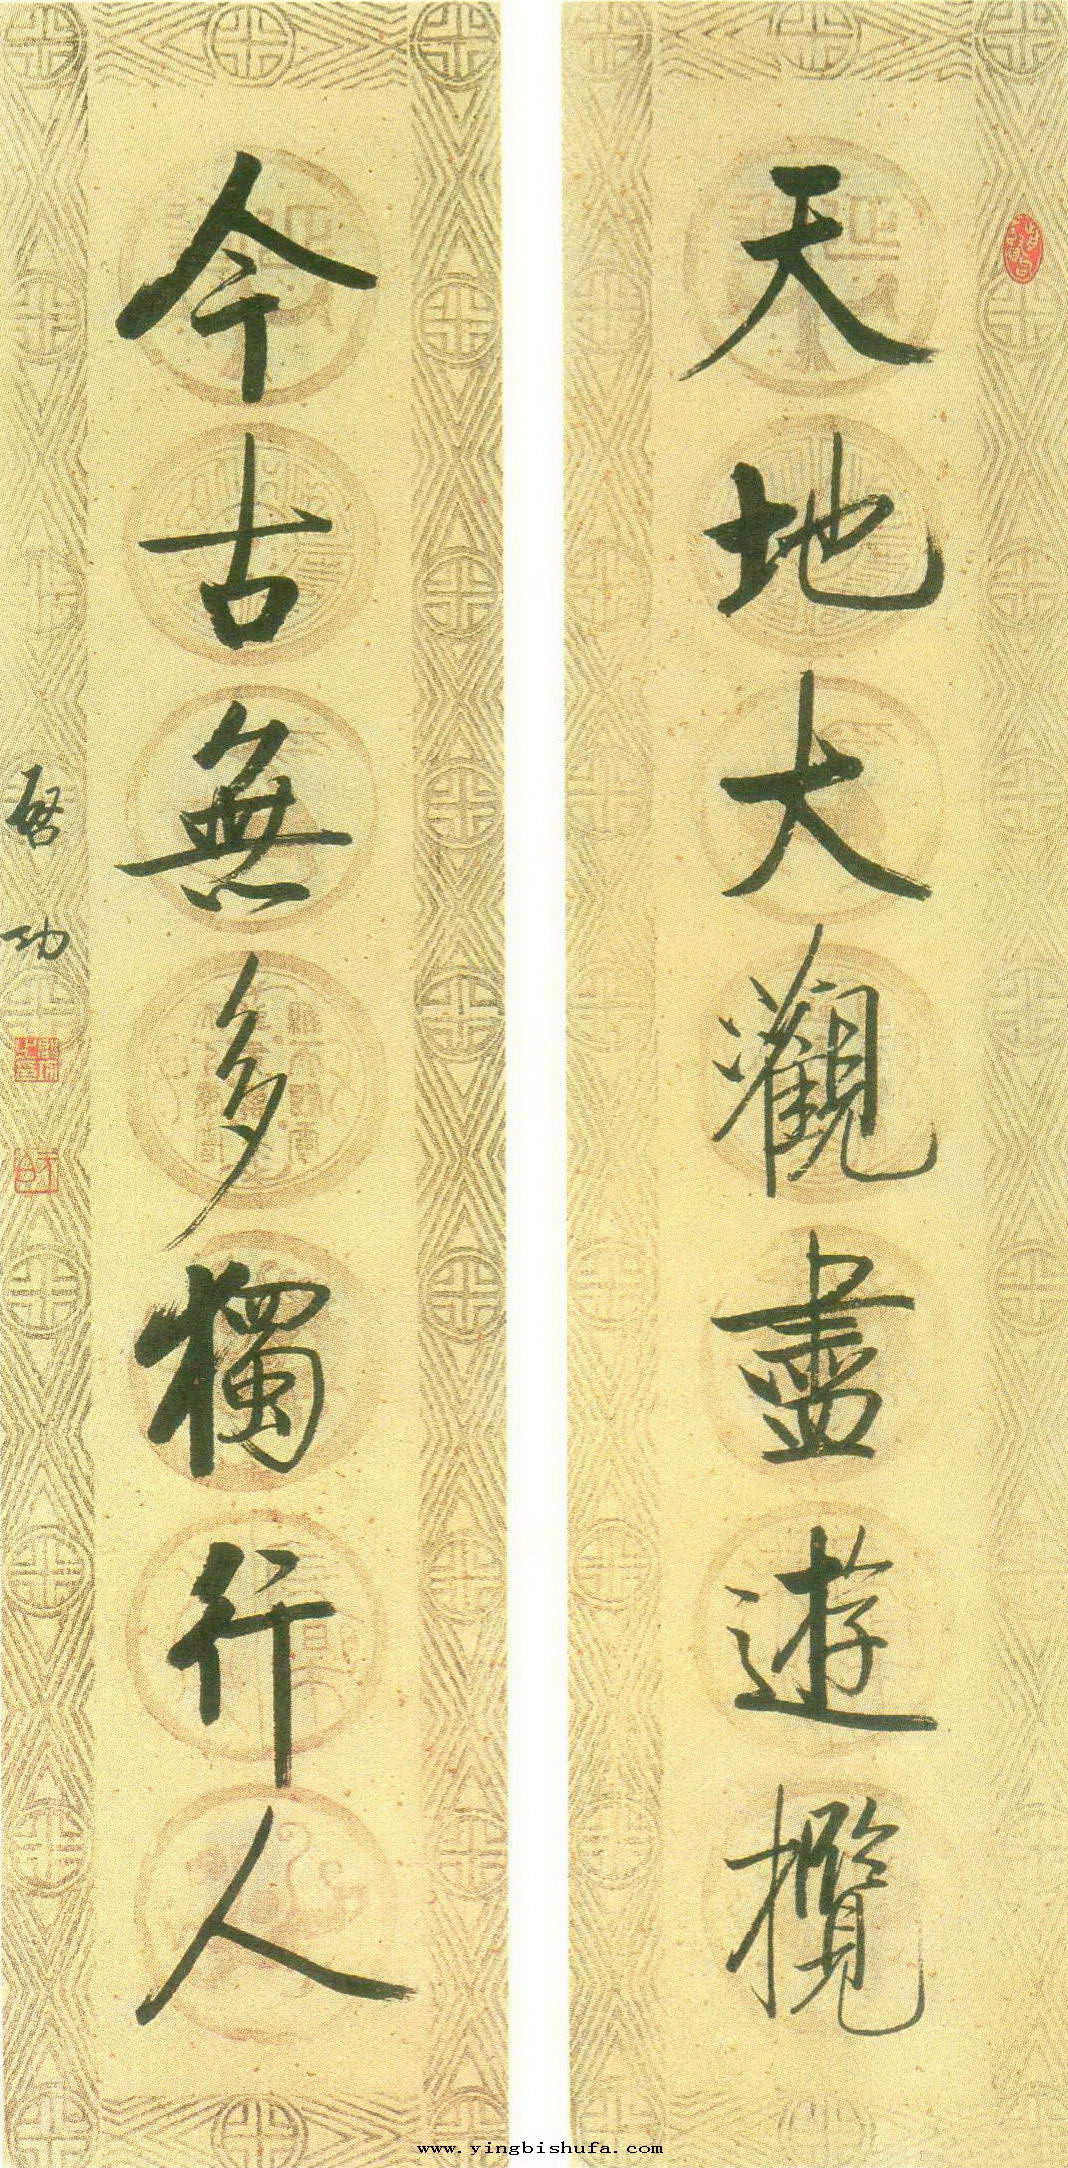 天地大觀盡遊攬
今古無多獨行人
啓功
www.yingbishufa.com